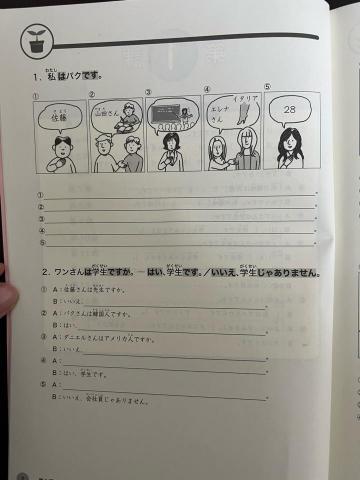 わたし
1. 私はパクです。
① ② ③ ④ ⑤
さとう
佐藤
山田さん
エレナさん
イタリア
28
①
②
③
④
⑤
がくせい がくせい がくせい
2. ワンさんは学生ですか。― はい、学生です。／いいえ、学生じゃありません。
① A：佐藤さんは先生ですか。
B：いいえ、
② A：パクさんは韓国人ですか。
B：はい、
③ A：ダニエルさんはアメリカ人ですか。
B：いいえ、
④ A：
B：はい、学生です。
⑤ A：
B：いいえ、会社員じゃありません。